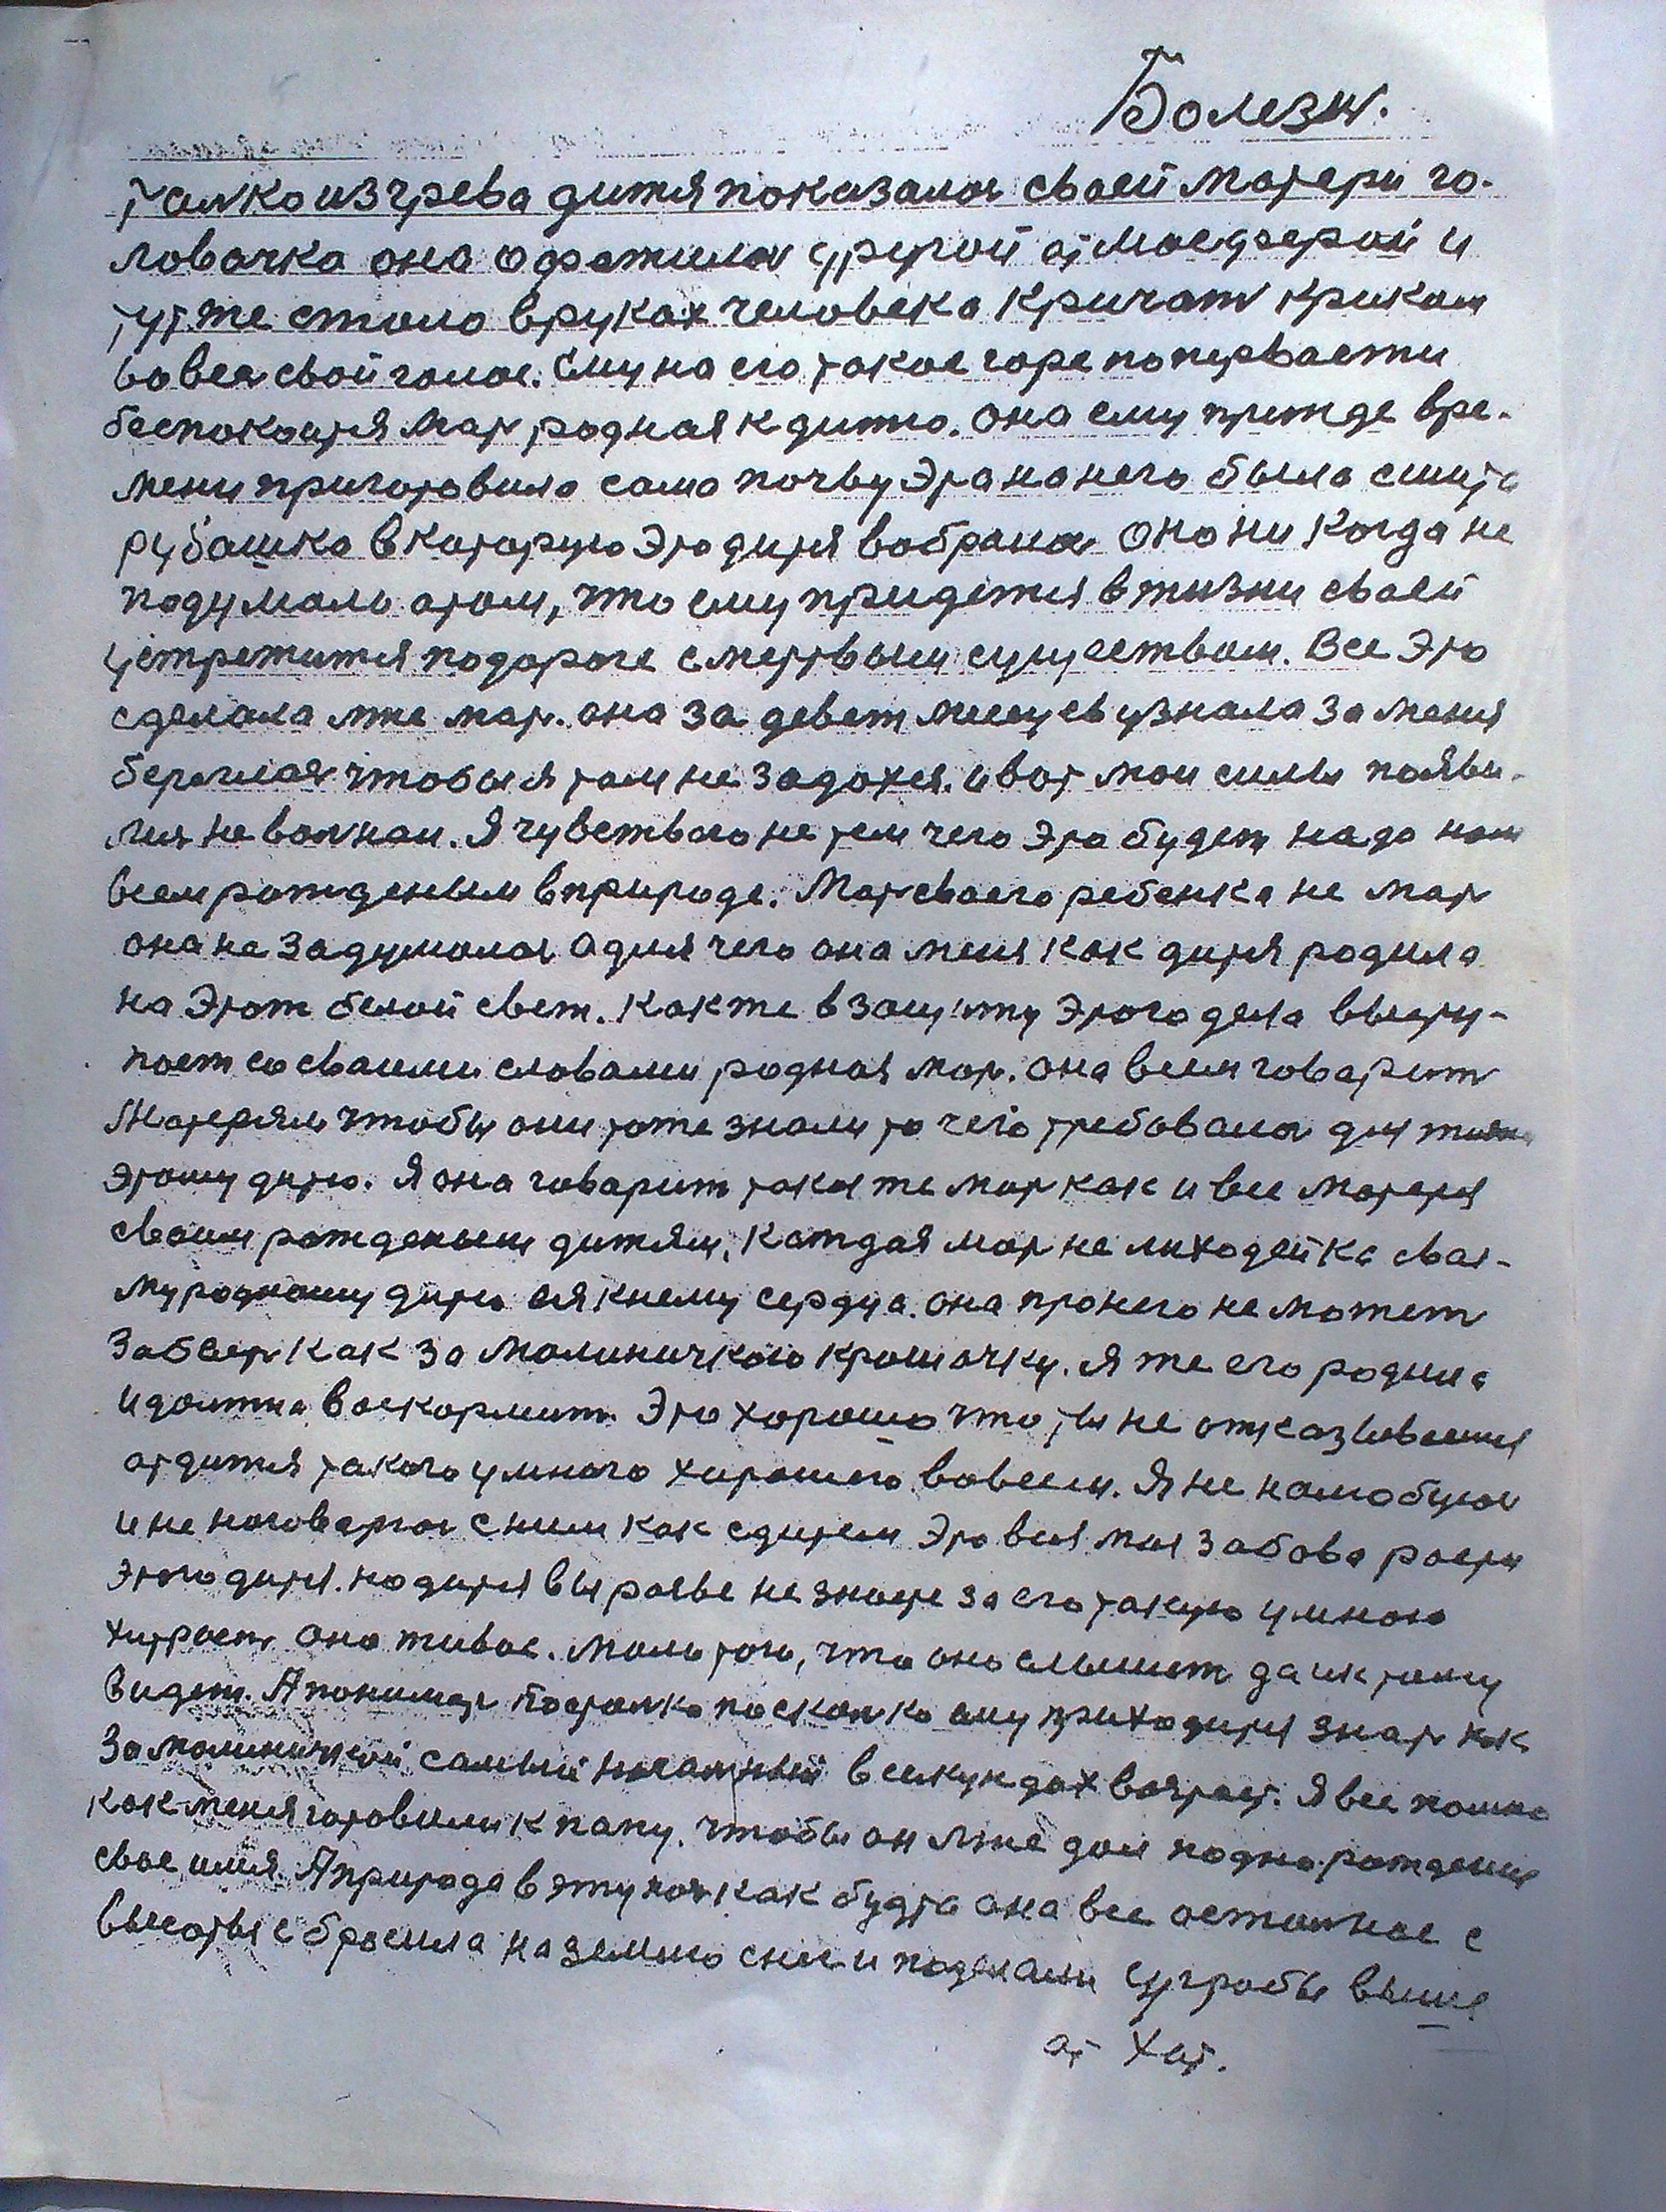 Болезн.
Толко из чрева дитя показалос своей матери го-
ловачка она офатилас другой атмасферай и
тут же стала в руках человека кричат криком
во вес свой голос. Ему на его такое горе по первасти
беспокоится мат родная к дитю. она ему прежде вре-
мени приготовила сама почву Эта на него была сшита
рубашка в катарую Это дитя вобралос Оно ни когда не
подумало атом, что ему придется в жизни своей
устретится по дороге с мертвым существом. Все Это
сделала мне мат. она за девет месецев узнала за меня
береглас чтобы я там не задохся. и вот мои силы появи-
лис на волнаи. Я чувствою не тем чего Это будет надо нам
всем рожденым в природе. Мат своего ребенка не мат
она не задумалас а для чего она меня как дитя родила
на Этот белой свет. Как же в защиту Этого дела высту-
пает со своими словами родная мат. она всем говарит
Матерям чтобы они тоже знали то чего требовалос для жизни
Этому дитю. Я она говарит такая же мат как и все матеря
своим рожденым дитям, каждая мат не лиходейка свая-
му родному дитю вся к нему сердца. она про него не может
забыт как за малиничкою крошачку. Я же его родила
и должна воскормит. Это хорошо что ты не отказываешся
от дитя такого умного хорошего во всем. Я не налюбуюс
и не наговарюс с ним как с дитем Это вся моя забова расти
Этого дитя. но дитя выросше не знает за его такую умною
хитрост оно живое. мало того, что оно слышит да и к тому
видет. А понимат постолко посколко ему приходится знат как
за малиничкой самый начальный в секундах возраст. Я все помню
как меня готовили к папу. чтобы он мне дал подно рождения
свое имя. А природа в эту ноч как будто она все осталное с
высоты сбросила на землю снег и поделали сугробы выше
от хат.